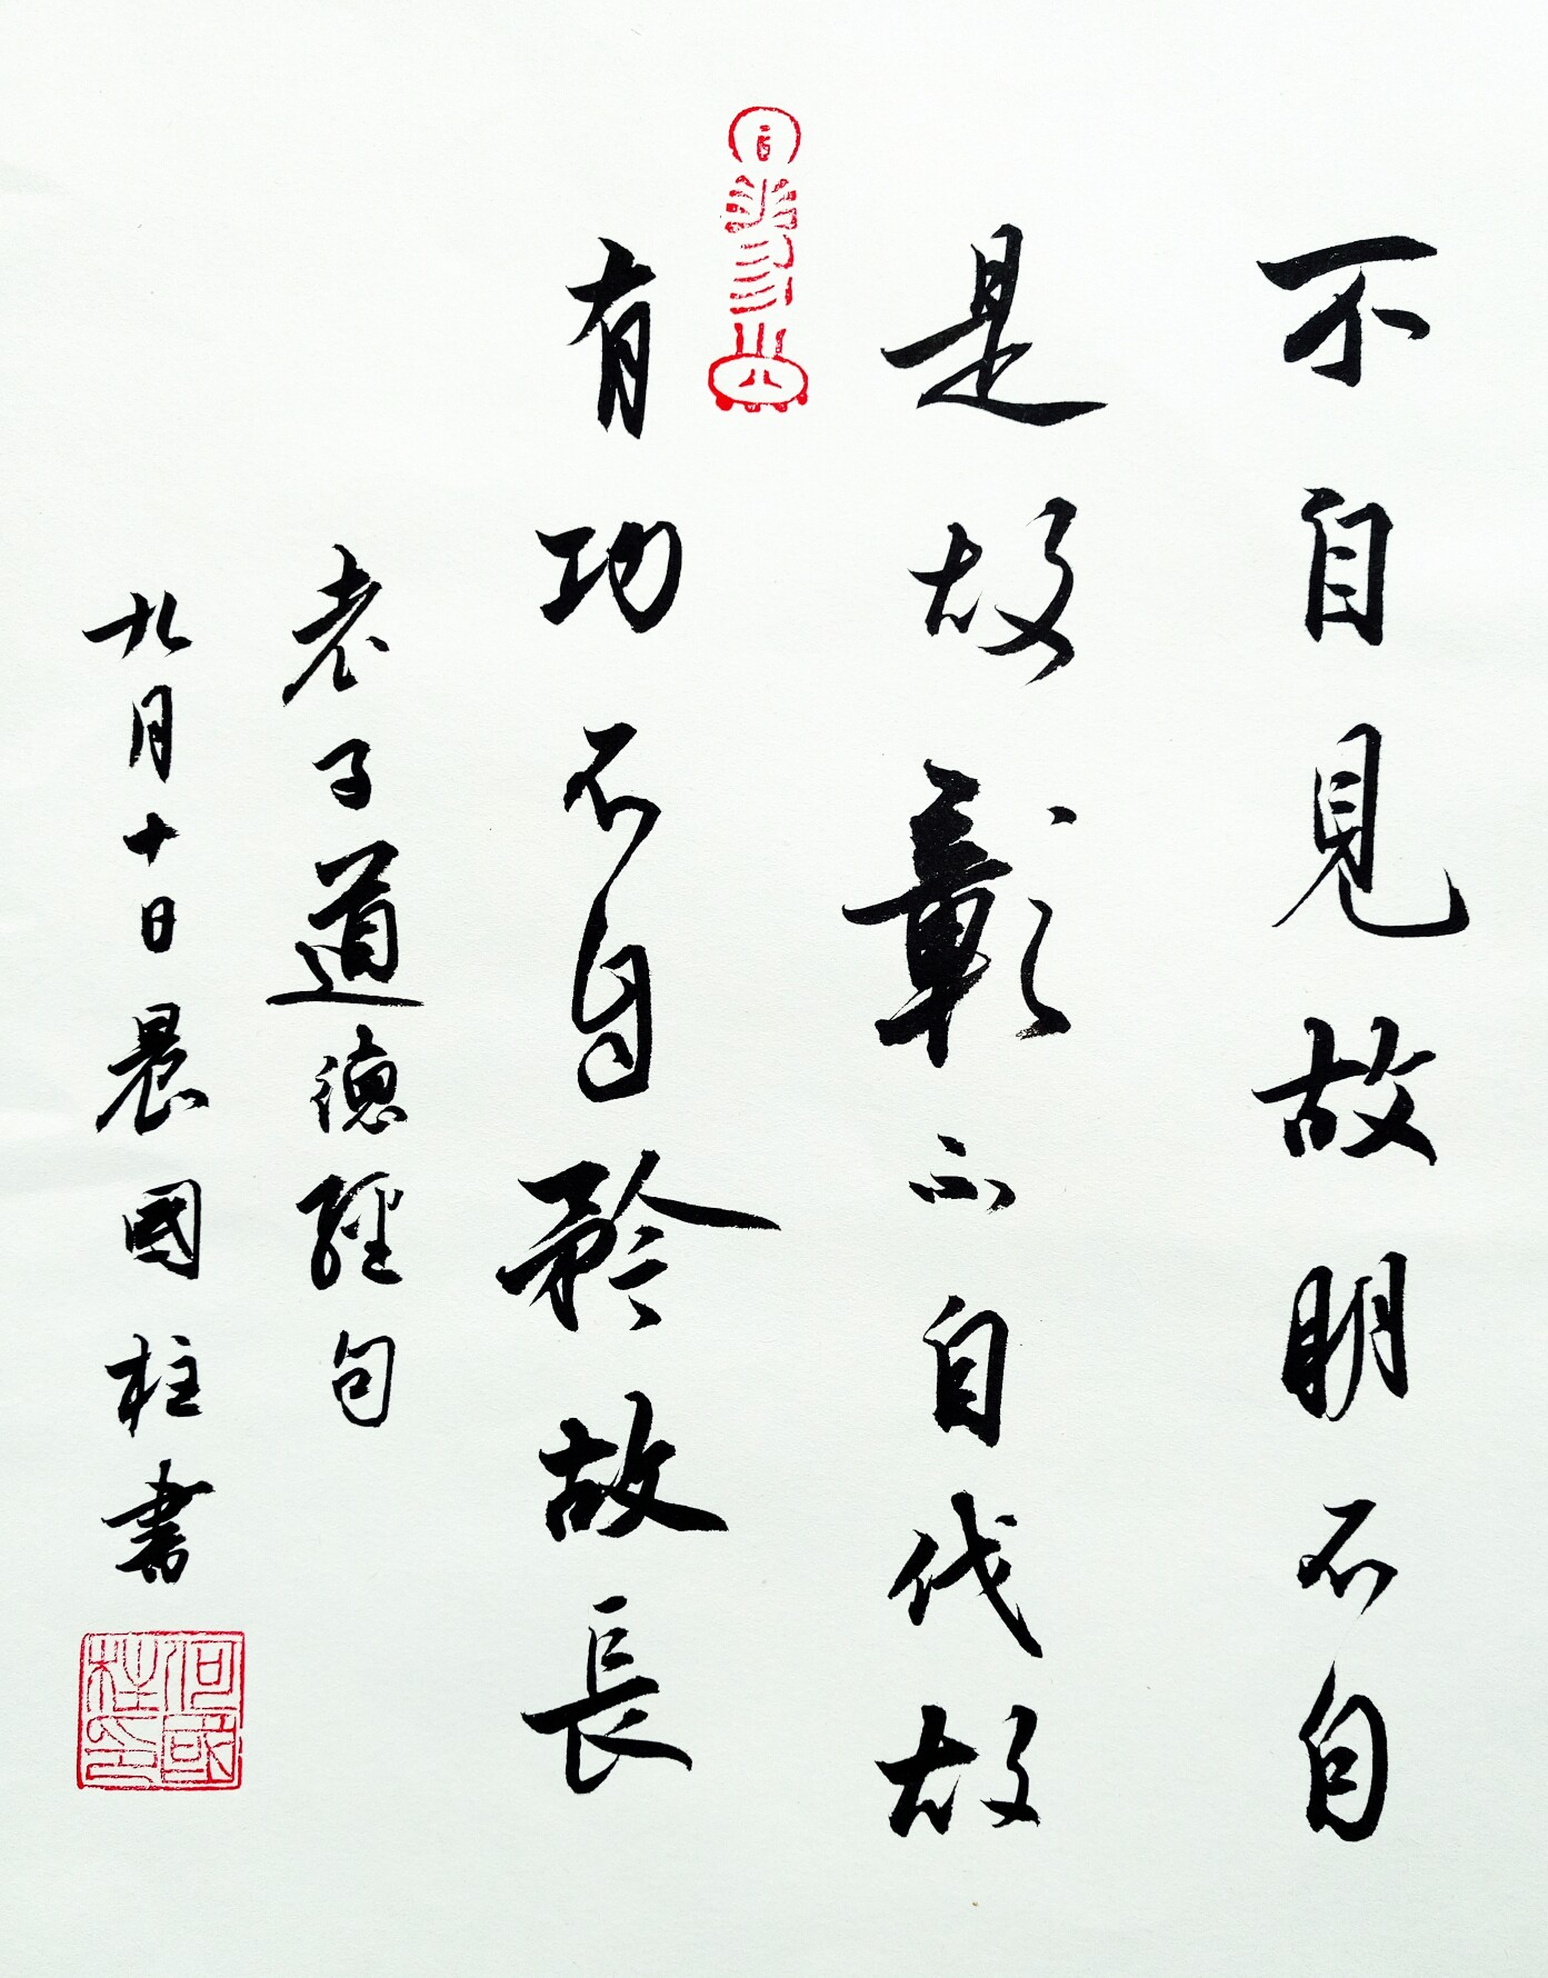 不自見故明不自
是故彰不自伐故
有功不自矜故長
老子道德經句
九月十日晨國柱書
何國柱印